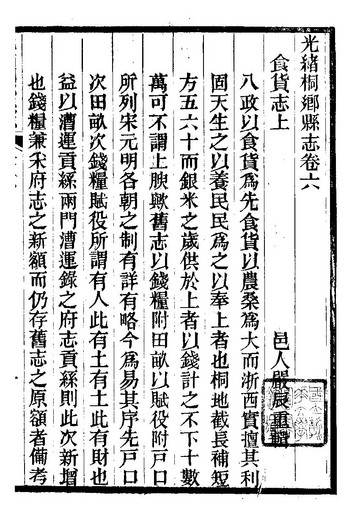 光緒桐鄉縣志卷六
食貨志上
邑人嚴辰重輯
八政以食貨爲先食貨以農桑爲大而浙西實擅其利
固天生之以養民民爲之以奉上者也桐地截長補短
方五六十而銀米之歲供於上者以錢計之不下十數
萬可不謂上腴歟舊志以錢糧附田畝以賦役附戶口
所列宋元明各朝之制有詳有略今爲易其序先戶口
次田畝次錢糧賦役所謂有人此有土有土此有財也
益以漕運貢絲兩門漕運錄之府志貢絲則此次新增
也錢糧兼采府志之新額而仍存舊志之原額者備考